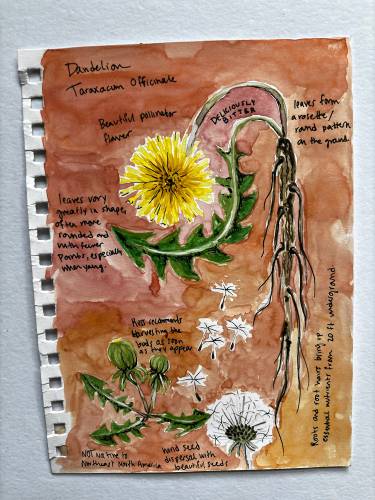 Dandelion
Taraxacum Officinale
Beautiful pollinator
flower
DELICIOUSLY
BITTER
leaves form
a rosette/
round pattern
on the ground
leaves vary
greatly in shape,
often more
rounded and
with fewer
points, especially
when young.
recommends
harvesting the
buds as soon
as they appear
Roots and root hairs bring up
essential nutrients from 20 ft underground
Not native to
Northeast North America
wind seed
dispersal with
beautiful seeds